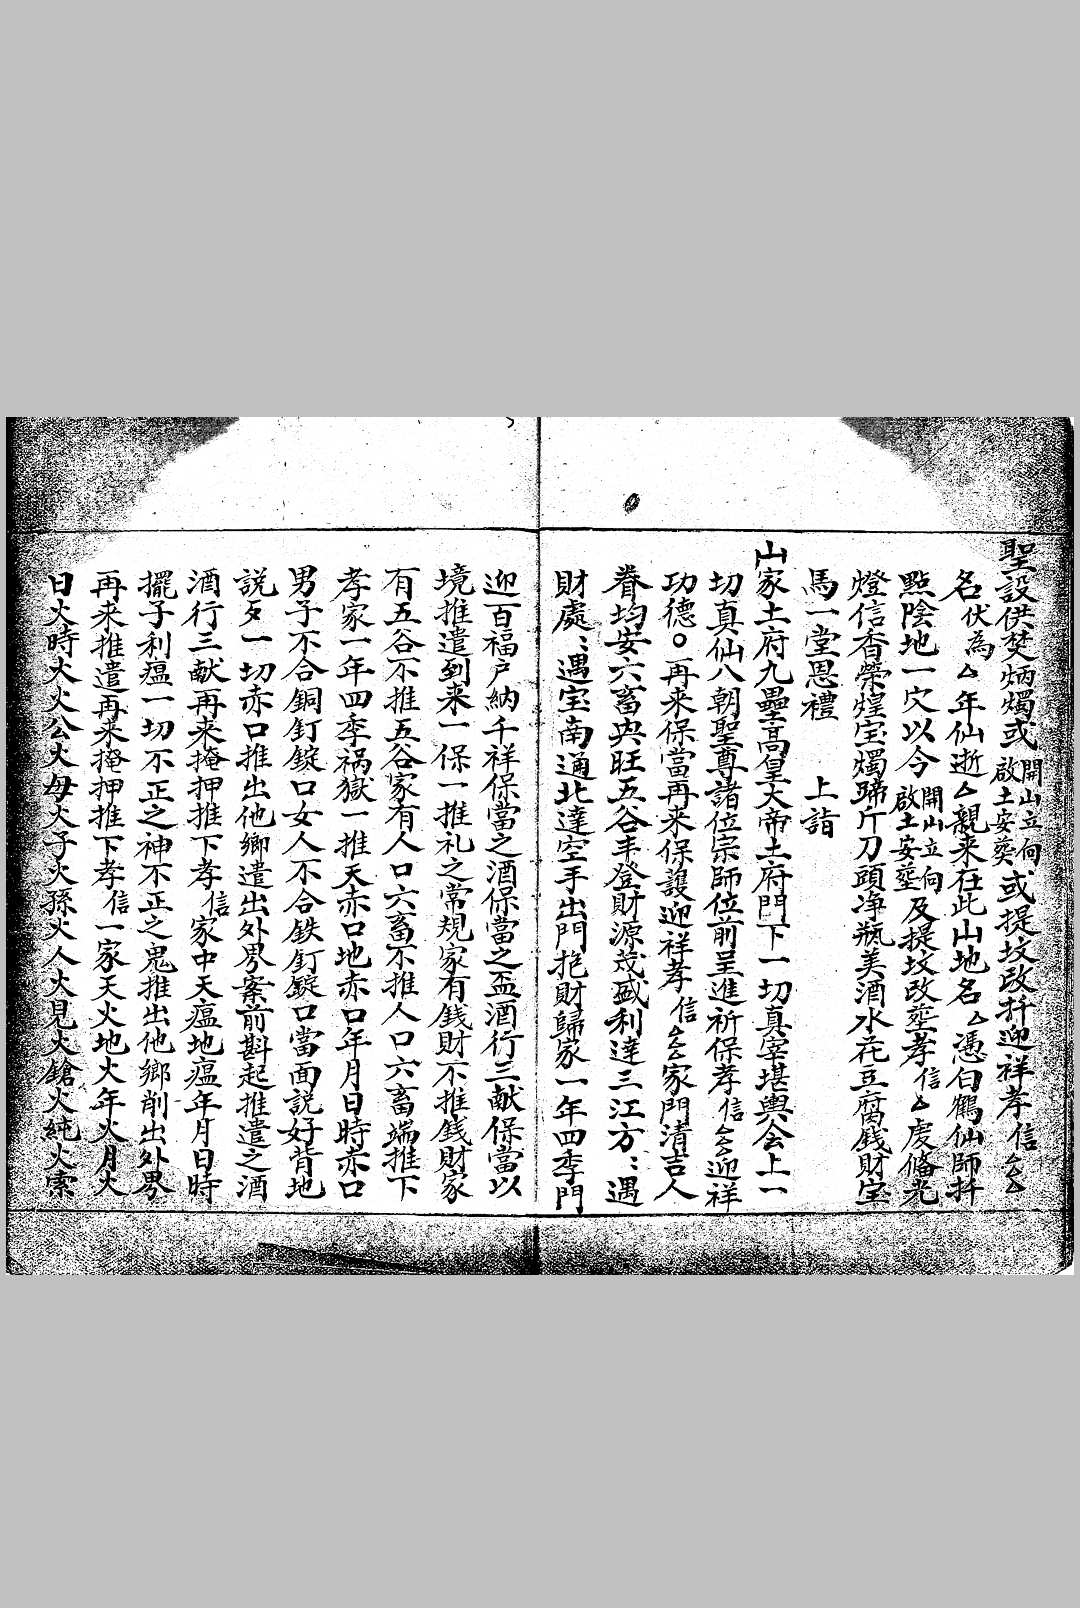 聖設供焚炳燭或開山立向啟土安葬或提坟改扦迎祥孝信厶厶厶
名伏為厶年仙逝厶親来在此山地名厶憑白鶴仙師扦
點陰地一穴以今開山立向啟土安塟及提坟改塟孝信厶虔偹光
燈信香榮煌宝燭蹄斤刀頭净瓶美酒水花豆腐錢財宝
馬一堂恩禮　上詣
山家土府九壘高皇大帝土府門下一切真宰堪輿会上一
切真仙八朝聖尊諸位宗師位前呈進祈保孝信厶厶迎祥
功德○再来保當再来保護迎祥孝信厶厶厶家門清吉人
眷均安六畜興旺五谷丰登財源茂盛利達三江方：遇
財處：遇宝南通北達空手出門抱財歸家一年四季門
迎百福户納千祥保當之酒保當之盃酒行三献保當以
境推遣到来一保一推礼之常規家有錢財不推錢財家
有五谷不推五谷家有人口六畜不推人口六畜端推下
孝家一年四季祸獄一推天赤口地赤口年月日時赤口
男子不合銅釘錠口女人不合鉄釘錠口當面説好背地
説歹一切赤口推出他鄉遣出外界案前斟起推遣之酒
酒行三献再来掩押推下孝信家中天瘟地瘟年月日時
擺子利瘟一切不正之神不正之鬼推出他鄉削出外界
再来推遣再来掩押推下孝信一家天火地火年火月火
日火時火火公火母火子火孫火人火見火鎗火純火索